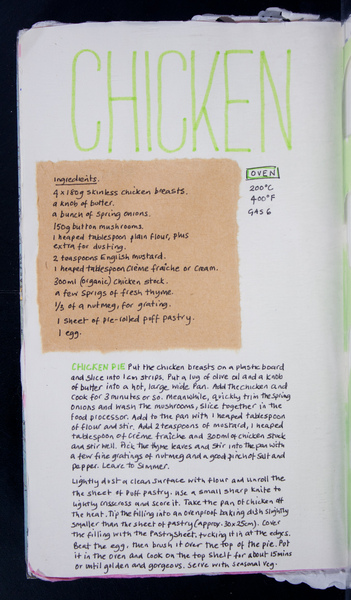 CHICKEN
Ingredients.
4 x 180g skinless chicken breasts.
a knob of butter.
a bunch of spring onions.
150g button mushrooms.
1 heaped tablespoon plain flour, plus
extra for dusting.
2 teaspoons English mustard.
1 heaped tablespoon crème fraîche or cream.
300ml (organic) chicken stock.
a few sprigs of fresh thyme.
1/3 of a nutmeg, for grating.
1 sheet of pre-rolled puff pastry.
1 egg.
OVEN
200°C
400°F
GAS 6
CHICKEN PIE Put the chicken breasts on a plastic board
and slice into 1cm strips. Put a lug of olive oil and a knob
of butter into a hot, large, wide pan. Add the chicken and
cook for 3 minutes or so. meanwhile, quickly trim the spring
onions and wash the mushrooms, slice together in the
food processor. Add to the pan with 1 heaped tablespoon
of flour and stir. Add 2 teaspoons of mustard, 1 heaped
tablespoon of crème fraîche and 300ml of chicken stock
and stir well. Pick the thyme leaves and stir into the pan with
a few fine gratings of nutmeg and a good pinch of salt and
pepper. Leave to simmer.
Lightly dust a clean surface with flour and unroll the
the sheet of puff pastry. use a small sharp knife to
lightly crisscross and score it. Take the pan of chicken off
the heat. Tip the filling into an ovenproof baking dish slightly
smaller than the sheet of pastry (approx. 30x25cm). Cover
the filling with the pastry sheet, tucking it in at the edges.
Beat the egg, then brush it over the top of the pie. Put
it in the oven and cook on the top shelf for about 15 mins
or until golden and gorgeous. Serve with seasonal veg.